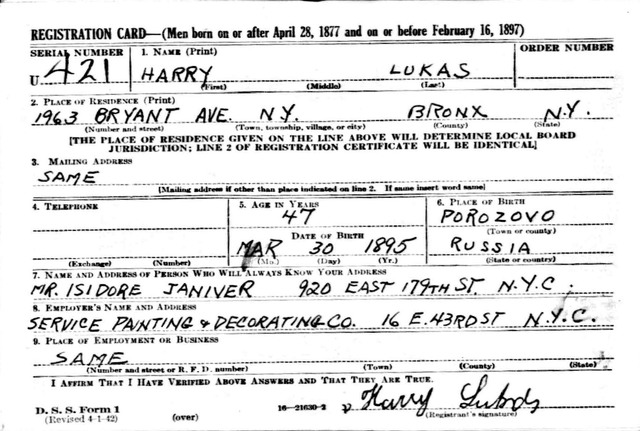 REGISTRATION CARD—(Men born on or after April 28, 1877 and on or before February 16, 1897)
SERIAL NUMBER 1. NAME (Print) ORDER NUMBER
U 421 HARRY LUKAS
(First) (Middle) (Last)
2. PLACE OF RESIDENCE (Print)
1963 BRYANT AVE. N.Y. BRONX N.Y.
(Number and street) (Town, township, village, or city) (County) (State)
[THE PLACE OF RESIDENCE GIVEN ON THE LINE ABOVE WILL DETERMINE LOCAL BOARD
JURISDICTION; LINE 2 OF REGISTRATION CERTIFICATE WILL BE IDENTICAL]
3. MAILING ADDRESS
SAME
[Mailing address if other than place indicated on line 2. If same insert word same]
4. TELEPHONE 5. AGE IN YEARS 6. PLACE OF BIRTH
47 POROZOVO
DATE OF BIRTH (Town or county)
MAR 30 1895 RUSSIA
(Exchange) (Number) (Mo.) (Day) (Yr.) (State or country)
7. NAME AND ADDRESS OF PERSON WHO WILL ALWAYS KNOW YOUR ADDRESS
MR. ISIDORE JANIVER 920 EAST 179TH ST. N.Y.C.
8. EMPLOYER'S NAME AND ADDRESS
SERVICE PAINTING & DECORATING CO. 16 E. 43RD ST N.Y.C.
9. PLACE OF EMPLOYMENT OR BUSINESS
SAME
(Number and street or R. F. D. number) (Town) (County) (State)
I AFFIRM THAT I HAVE VERIFIED ABOVE ANSWERS AND THAT THEY ARE TRUE.
D. S. S. Form 1 Harry Lukas
(Revised 4-1-42) (over) 16—21630-2 (Registrant's signature)